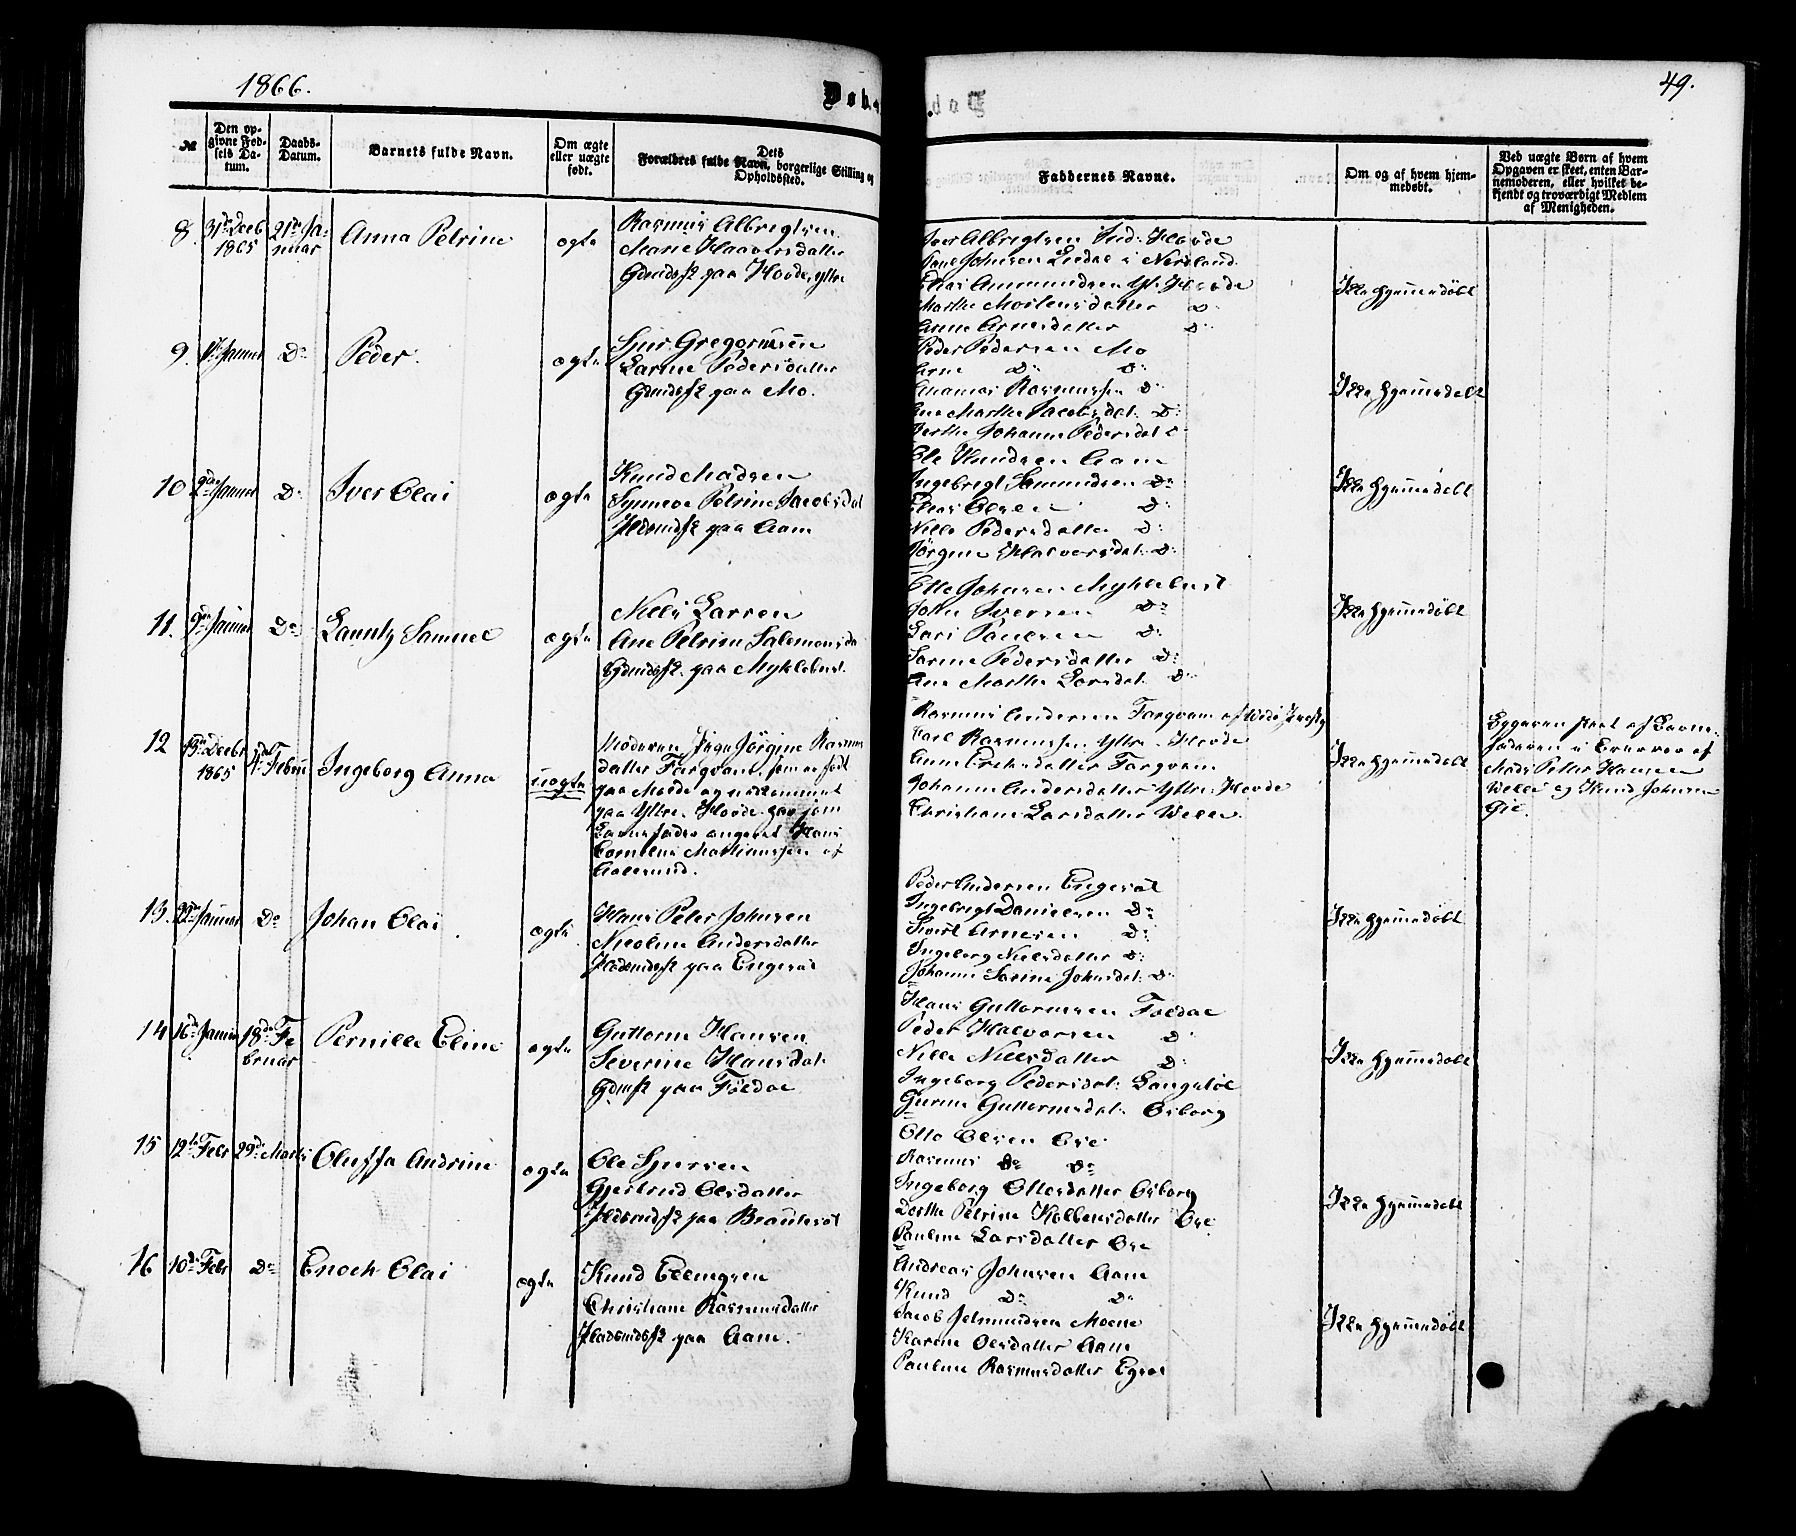 1866.
Døb.
49.
№
Den opgivne Fødsels Datum.
Daabs-Datum.
Barnets fulde Navn.
Om ægte eller uægte født.
Forældres fulde Navn, Dets borgerlige Stilling og Opholdssted.
Faddernes Navne.
Om og af hvem hjemmedøbt.
Ved uægte Børn af hvem Opgaven er skeet, enten Barnemoderen, eller hvilket bekjendt og troværdigt Medlem af Menigheden.
8. 31te Decb 1865
21de Januar
Anna Petrine
ægte
Rasmus Albregtsen
Marie Haaversdatter
Gdmdsf paa Hovde, yttre
Iver Albregtsen Ind: Hovde
Johnsen i Nordland
Elias Ammundsen Yt: Hovde
Marthe Mortensdatter D:
Anne Arnesdatter D:
Ikke hjemmedøbt
9. Januar
D:
Peder.
ægte
Sjur Gregoriusen
Karine Pedersdatter
Gdmdsf paa Mo.
Peder Pedersen Mo
Arne D: D:
Rasmussen D:
Ane Marthe Jacobsdat. D:
Berthe Johanne Pedersdat:
Ikke hjemmedøbt
10 2den Januar
D:
Iver Olai
ægte
Knud Madsen
Synneve Petrine Jacobsdat
Huusmdsf paa Aam
Ole Knudsen Aam
Ingebrigt Samundsen D:
Elias Olsen D:
Nille Pedersdatter D:
Jørgine Halvorsdat. D:
Ikke hjemmedøbt
11. 9de Januar
D:
Lauritz Samuel
ægte
Nils Larsen
Ane Petrine Salemonsda
Gdmdsf paa Myklebust.
Ole Johnsen Myklebust
John Iversen D:
Lars Paulsen D:
Karine Pedersdatter D:
Ane Marthe Larsdat. D:
Ikke hjemmedøbt
12 13de Decbr 1865
4de Februar
Ingeborg Anna
uægte
Moderen Pige Jørgine Rasmus
datter Fargvam, som er født
paa Hovde og nedkommet
paa Yttre Hovde har som
Barnefader angivet Hans
Cornelius Mathiassen af
Aalesund.
Rasmus Andersen Fargvam
Carl Rasmussen Yttre Hovde
Anne Eriksdatter Fargvam
Johanne Andersdatter Yttre Hovde
Christiane Larsdatter Welle.
Ikke hjemmedøbt
Opgaven skeet af Barne-
faderen i Overvær af
Mads Peter Hansen
Welle og Knud Johnsen
13. 22de Januar
D:
Johan Olai
ægte
Hans Peter Johnsen
Nicoline Andersdatter
Huusmdsf paa Engeset
Peder Andersen Engeset
Ingebrigt Danielsen D:
Sivert Arnesen D:
Ingeborg Nielsdatter D:
Johanne Karine Johnsdat. D:
Ikke hjemmedøbt
14 16de Januar
18de Februar
Pernille Eline
ægte
Guttorm Hansen
Severine Hansdat:
Gdmsf paa Føldal
Hans Guttormsen Føldal
Peder Halvorsen D:
Nille Nilsdatter D:
Ingeborg Pedersdat: Langeløe
Gurine Guttormsdat: Osborg
Ikke hjemmedøbt
15 12te Febr
29de Marts
Oluffa Andrine
ægte
Ole Sjursen
Gjertrud Olsdatter
Huusmdsf paa Brauteset
Otto Olsen Øie
Rasmus D: D:
Ingeborg Ottosdatter Osborg
Dorthe Petrine Kolbensdatter Øie
Pauline Larsdatter Øie
Ikke hjemmedøbt
16 10de Febr
D:
Enoch Olai
ægte
Knud Ellingsen
Christiane Rasmusdatter
Huusmdsf paa Aam.
Andreas Johnsen Aam
Knud D: D:
Jacob Jetmundsen Moene
Karine Olsdatter Aam
Pauline Rasmusdatter Egset
Ikke hjemmedøbt